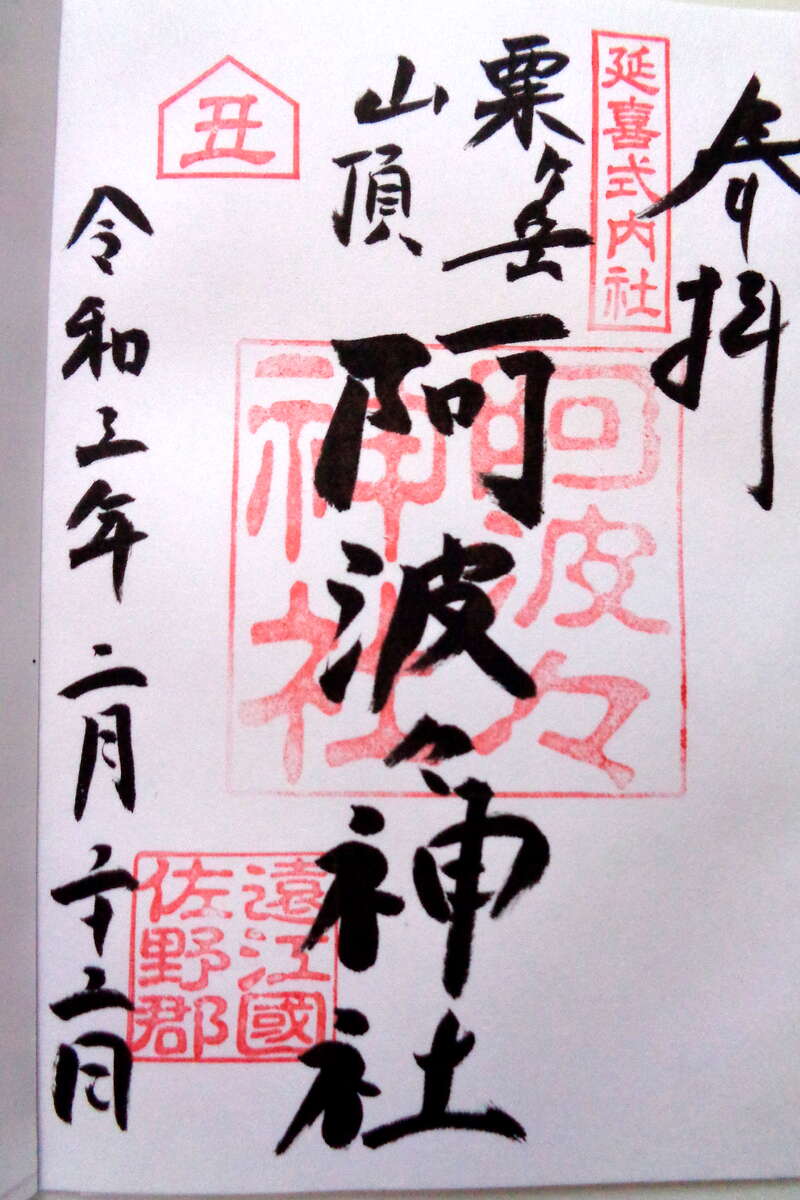 参拝
延喜式内社
粟ヶ岳
山頂
阿波々神社
阿波々
神社
丑
遠江國
佐野郡
令和三年二月二十二日